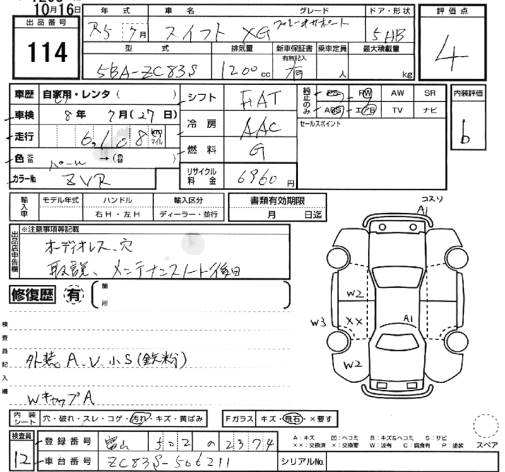 10月16日
出品番号
114
年式 車名 グレード ドア・形状
R5 7月 スイフト XG 5HB
評価点
4
型式 排気量 新車保証書 乗車定員 最大積載量
有無記入
5BA-ZC83S 1200cc 有 人 kg
車歴 自家用・レンタ( )
車検 8年 7月(27日)
走行 6,108 km マイル
色 パール →( )
カラーNo. ZVR
シフト FAT
冷房 AAC
燃料 G
リサイクル料金 6960円
純正のみ PS PW AW SR
ABS エアB TV ナビ
セールスポイント
内装評価
b
輸入車 モデル年式 ハンドル 輸入区分
右H・左H ディーラー・並行
書類有効期限
月 日迄
出品店申告欄
※注意事項等記載
オーディオレス、穴
取説、メンテナンスノート後日
修復歴 有 箇所
検査員記入欄
外装A、U、小S(鉄粉)
WキャップA
コスリ
A1
W2
W3 XX A1
W2
内装シート 穴・破れ・スレ・コゲ・汚れ・キズ・黄ばみ
Fガラス キズ・飛石・×要す
検査員
12
登録番号 富山 502 の 2374
車台番号 ZC83S-506211
シリアルNo.
A:キズ U:ヘコミ B:キズ&ヘコミ S:サビ
××:交換済 ×:交換要 W:波有 C:腐食有 P:塗装
スペア